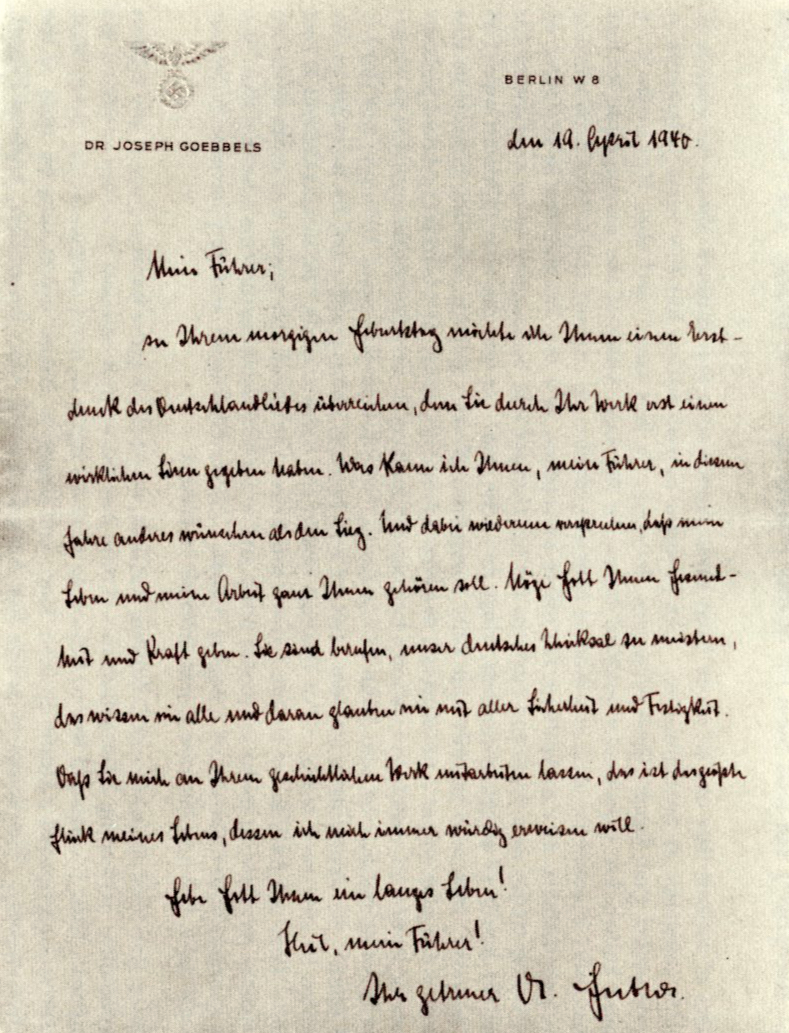 BERLIN W 8
DR. JOSEPH GOEBBELS
den 19. April 1940.
Mein Führer;
zu Ihrem morgigen Geburtstag möchte ich Ihnen einen Erst-
druck des Deutschlandliedes überreichen, dem Sie durch Ihr Werk erst einen
wirklichen Sinn gegeben haben. Was kann ich Ihnen, mein Führer, in diesem
Jahre anderes wünschen als den Sieg. Und dabei wiederum versprechen, daß mein
Leben und meine Arbeit ganz Ihnen gehören soll. Möge Gott Ihnen Gesund-
heit und Kraft geben. Sie sind berufen, unser deutsches Schicksal zu meistern,
das wissen wir alle und daran glauben wir mit aller Sicherheit und Festigkeit.
Daß Sie mich an Ihrem geschichtlichen Werk mitarbeiten lassen, das ist das größte
Glück meines Lebens, dessen ich mich immer würdig erweisen will.
Gebe Gott Ihnen ein langes Leben!
Heil, mein Führer!
Ihr getreuer Dr. Goebbels.